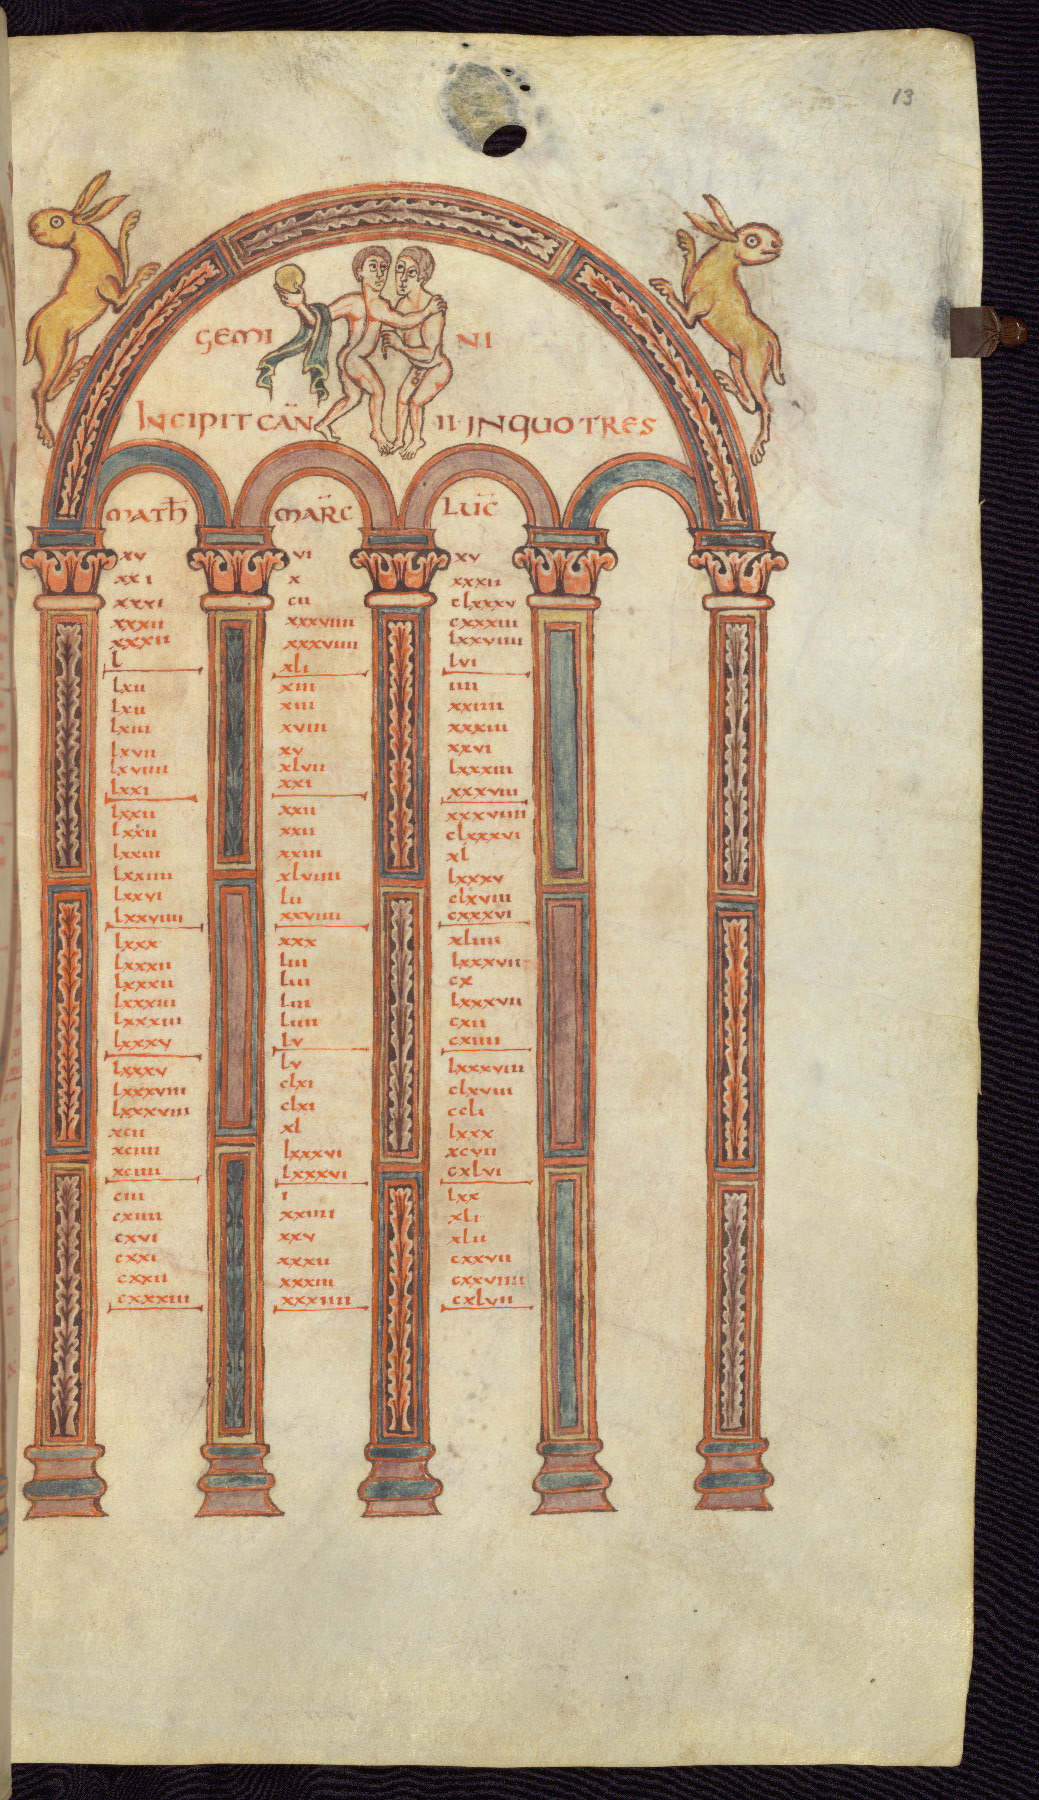 13
GEMI NI
INCIPIT CAN̄ II· IN QUO TRES
MATħ MAR̄C LUC̄
xv vi xv
xxi x xxxii
xxxi cii clxxxv
xxxii xxxviiii cxxxiii
xxxii xxxviiii lxxviiii
l xli lvi
lxii xiii iiii
lxii xiii xxiiii
lxiii xviii xxxiii
lxvii xv xxvi
lxviiii xlvii lxxxiii
lxxi xxi xxxviii
lxxii xxii xxxviiii
lxxii xxii clxxxvi
lxxiii xxiii xl
lxxiiii xlviiii lxxxv
lxxvi lii clxviii
lxxviiii xxviiii cxxxvi
lxxx xxx xliiii
lxxxii liii lxxxvii
lxxxii liii cx
lxxxiii liii lxxxvii
lxxxiii liiii cxii
lxxxv lv cxiiii
lxxxv lv lxxxviii
lxxxviii clxi clxviii
lxxxviii clxi ccli
xcii xl lxxx
xciiii lxxxvi xcvii
xciiii lxxxvi cxlvi
ciii i lxx
cxiiii xxiiii xli
cxvi xxv xlii
cxxi xxxii cxxvii
cxxii xxxiii cxxviiii
cxxxiii xxxiiii cxlvii